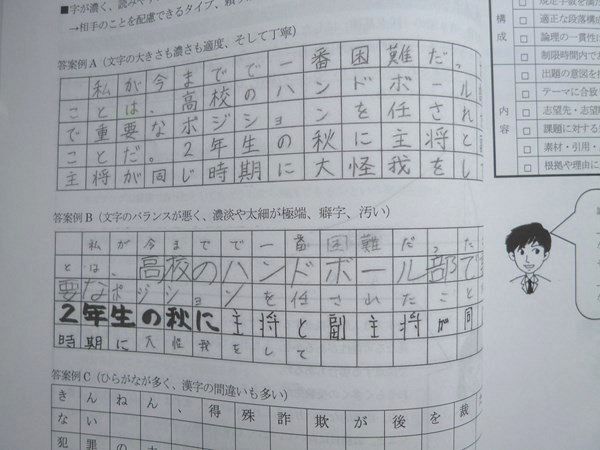 ■字が濃く、読みや
→相手のことを配慮できるタイプ、頼り
答案例A（文字の大きさも濃さも適度、そして丁寧）
私が今までで一番困難だっ
ことは、高校のハンドボール
で重要なポジションを任され
ことだ。2年生の秋に主将と
主将が同じ時期に大怪我をし
答案例B（文字のバランスが悪く、濃淡や太細が極端、癖字、汚い）
私が今までで一番困難だった
とは、高校のハンドボール部で
要なポジションを任されたこと
2年生の秋に主将と副主将が同
時期に大怪我をして
答案例C（ひらがなが多く、漢字の間違いも多い）
きんねん、得殊詐欺が後を裁
ない
犯罪の
構成
内容
□ 規定字数を満た
□ 適正な段落構成
□ 論理の一貫性に
□ 制限時間内で
□ 出題の意図を
□ テーマに合致
□ 志望先・志望
□ 課題に対する
□ 素材・引用・
□ 根拠や理由に